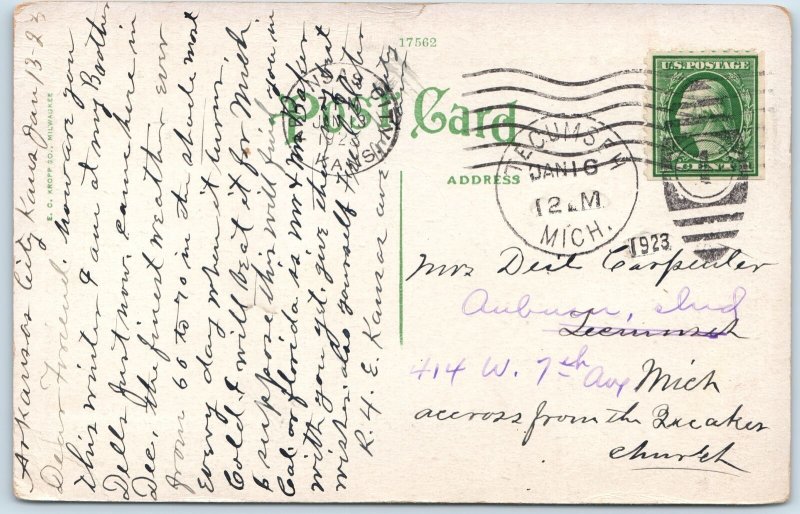 17562
Post Card
ADDRESS
E. C. KROPP CO., MILWAUKEE
U.S. POSTAGE
TECUMSEH
JAN 16
12 M
MICH.
1923
Arkansas City Kans Jan 13-23
Dear Friend. how are you
this winter I am at my Brother
Dells just now. came here in
Dec, the finest weather ever
from 60 to 70 in the shade most
every day when it turns
Cold I will beat it for Mich.
I suppose this will find you in
Cal or florida is Mr & Mrs
with you yet give them my best
wishes also yourself
R. H. E. Kansas ave
Mrs Deil Carpenter
Auburn, Ind
Tecumseh
414 W. 7th Ave Mich
accross from the Quaker
church